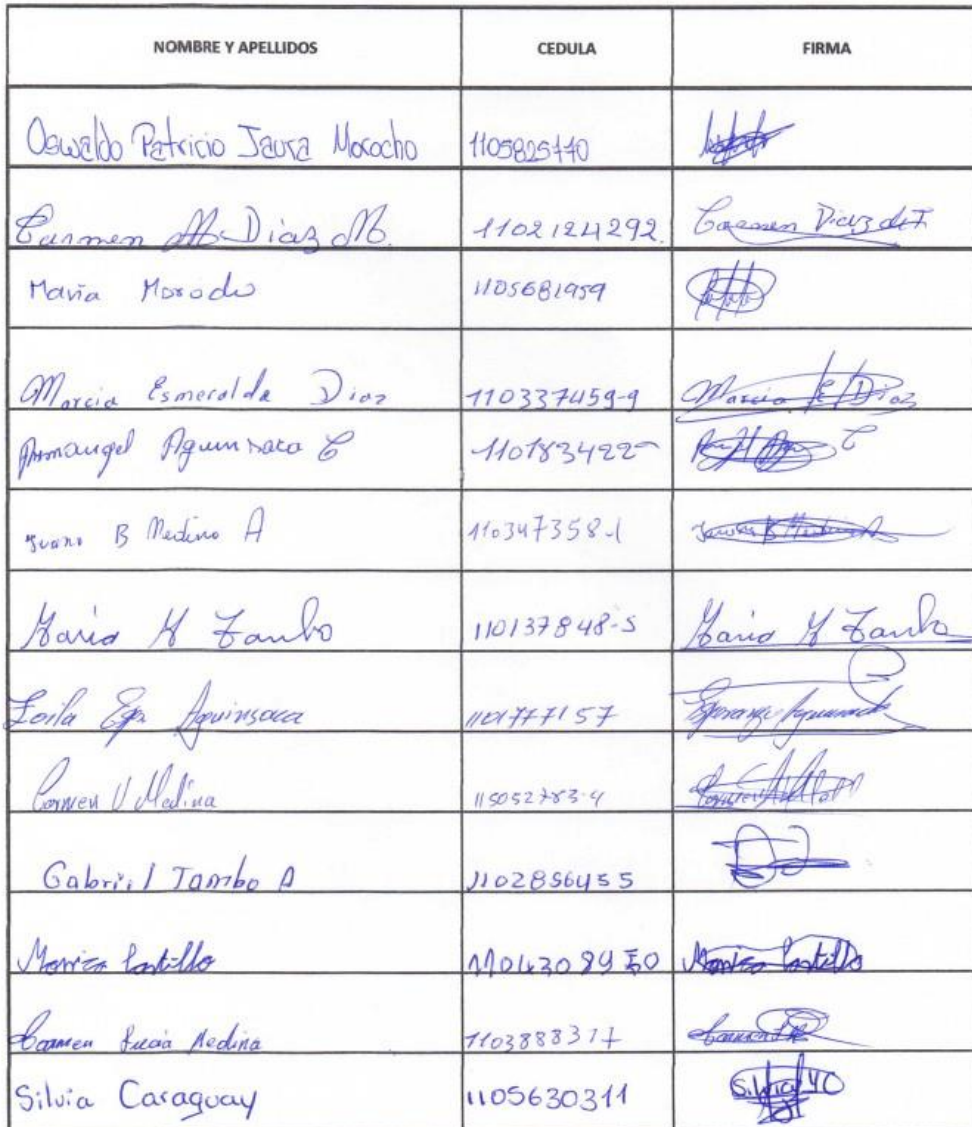 NOMBRE Y APELLIDOS CEDULA FIRMA
Oswaldo Patricio Jaura Morocho 1105825770
Carmen M Diaz M. 1102124292. Carmen Diaz de T.
Maria Morocho 1105681959
Marcia Esmeralda Diaz 110337459-9 Marcia E Diaz
Aguinsaca C 110183422 C
Juana B Medina A 110347358-1 B Medina A
Maria M Tambo 110137848-5 Maria M Tambo
Zoila Esp. Aguinsaca 1101777157 Esperanza Aguinsaca
Carmen V Medina 115052783-4 Carmen
Gabriel Tambo A 1102856455
Castillo Castillo
Carmen Lucia Medina 1103888317 Carmen
Silvia Caraguay 1105630311 Silvia YC